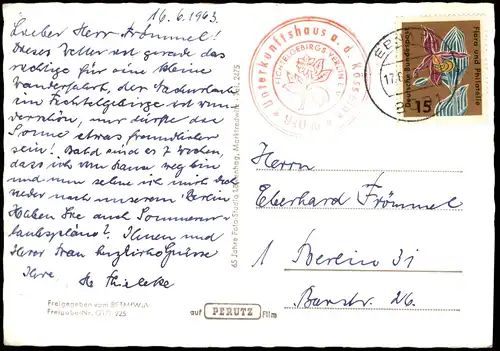 16.6.1963.
Lieber Herr Frömmel!
Dieses Wetter ist gerade das
richtige für eine kleine
Wanderfahrt, der Taduurlaub
im Fichtelgebirge ist wun
derschön, nur dürfte die
Sonne etwas freundlicher
sein! Bald sind es 7 Wochen,
dass ich von Hause weg bin
und nun sehne ich mich
wieder nach unserem Berlin
Haben Sie auch Sommerur-
laubspläne? Ihnen und
Ihrer Frau herzliche Grüsse
Ihre
Freigegeben vom
Freigabe-Nr. 225
65 Jahre Foto-Studio Marktredwitz 2675
auf PERUTZ Film
Unterkunftshaus a. d. Kösseine
FICHTELGEBIRGSVEREIN E.V.
EB
17.6
15
Deutsche Bundespost
Flora und Philatelie
Herrn
Eberhard Frömmel
1 Berlin 31
Barstr. 26.